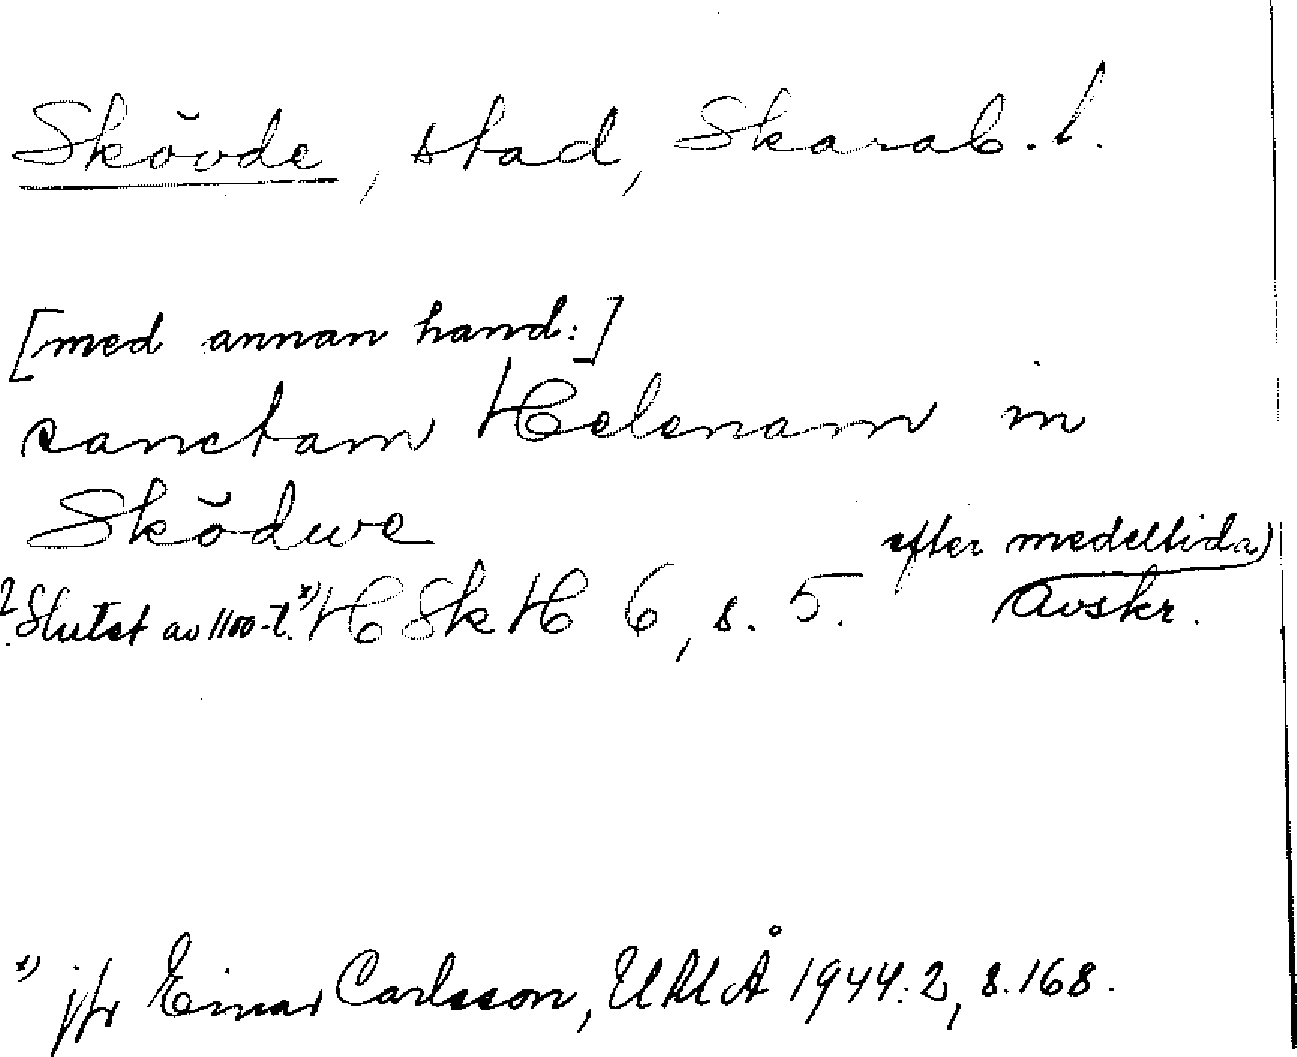 Skövde, stad, Skarab. l.
[med annan hand:]
sanctam Helenam in
Sködwe
efter medeltida)
? Slutet av 1100-t. *) HSkH 6, s. 5. avskr.
*) jfr Einar Carlsson, UUÅ 1944:2, s. 168.